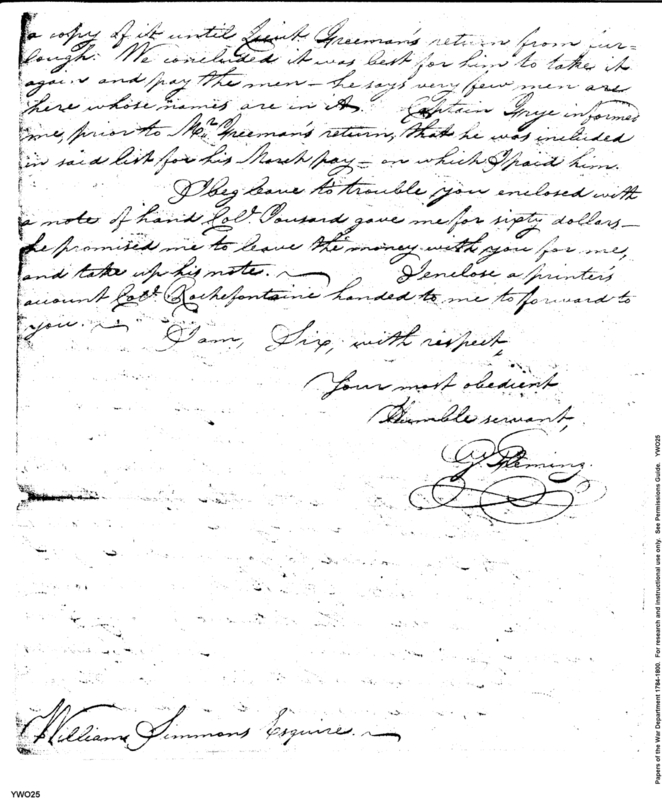 a copy of it until Lieut. Freeman's return from fur=
lough. We concluded it was best for him to take it
again and pay the men — he says very few men are
here whose names are in it. Captain Frye informed
me, prior to Mr. Freeman's return, that he was included
in said list for his March pay — on which I paid him.
I beg leave to trouble you enclosed with
a note of hand Colo. gave me for sixty dollars —
he promised me to leave the money with you for me,
and take up his note. — I enclose a printer's
account Colo. Rochefontaine handed to me to forward to
you. —
I am, Sir, with respect,
Your most obedient
Humble servant,
G. Fleming.
William Simmons Esquire. —
Papers of the War Department 1784-1800. For research and instructional use only. See Permissions Guide. YWO25
YWO25